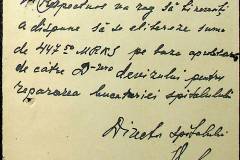 va rog să binevoiți
a dispune să se elibereze suma
de 447.50 MRKS pe baza aprobărei
de către D-voastră devizului pentru
repararea lucrărilor spitalului
Director spitalului